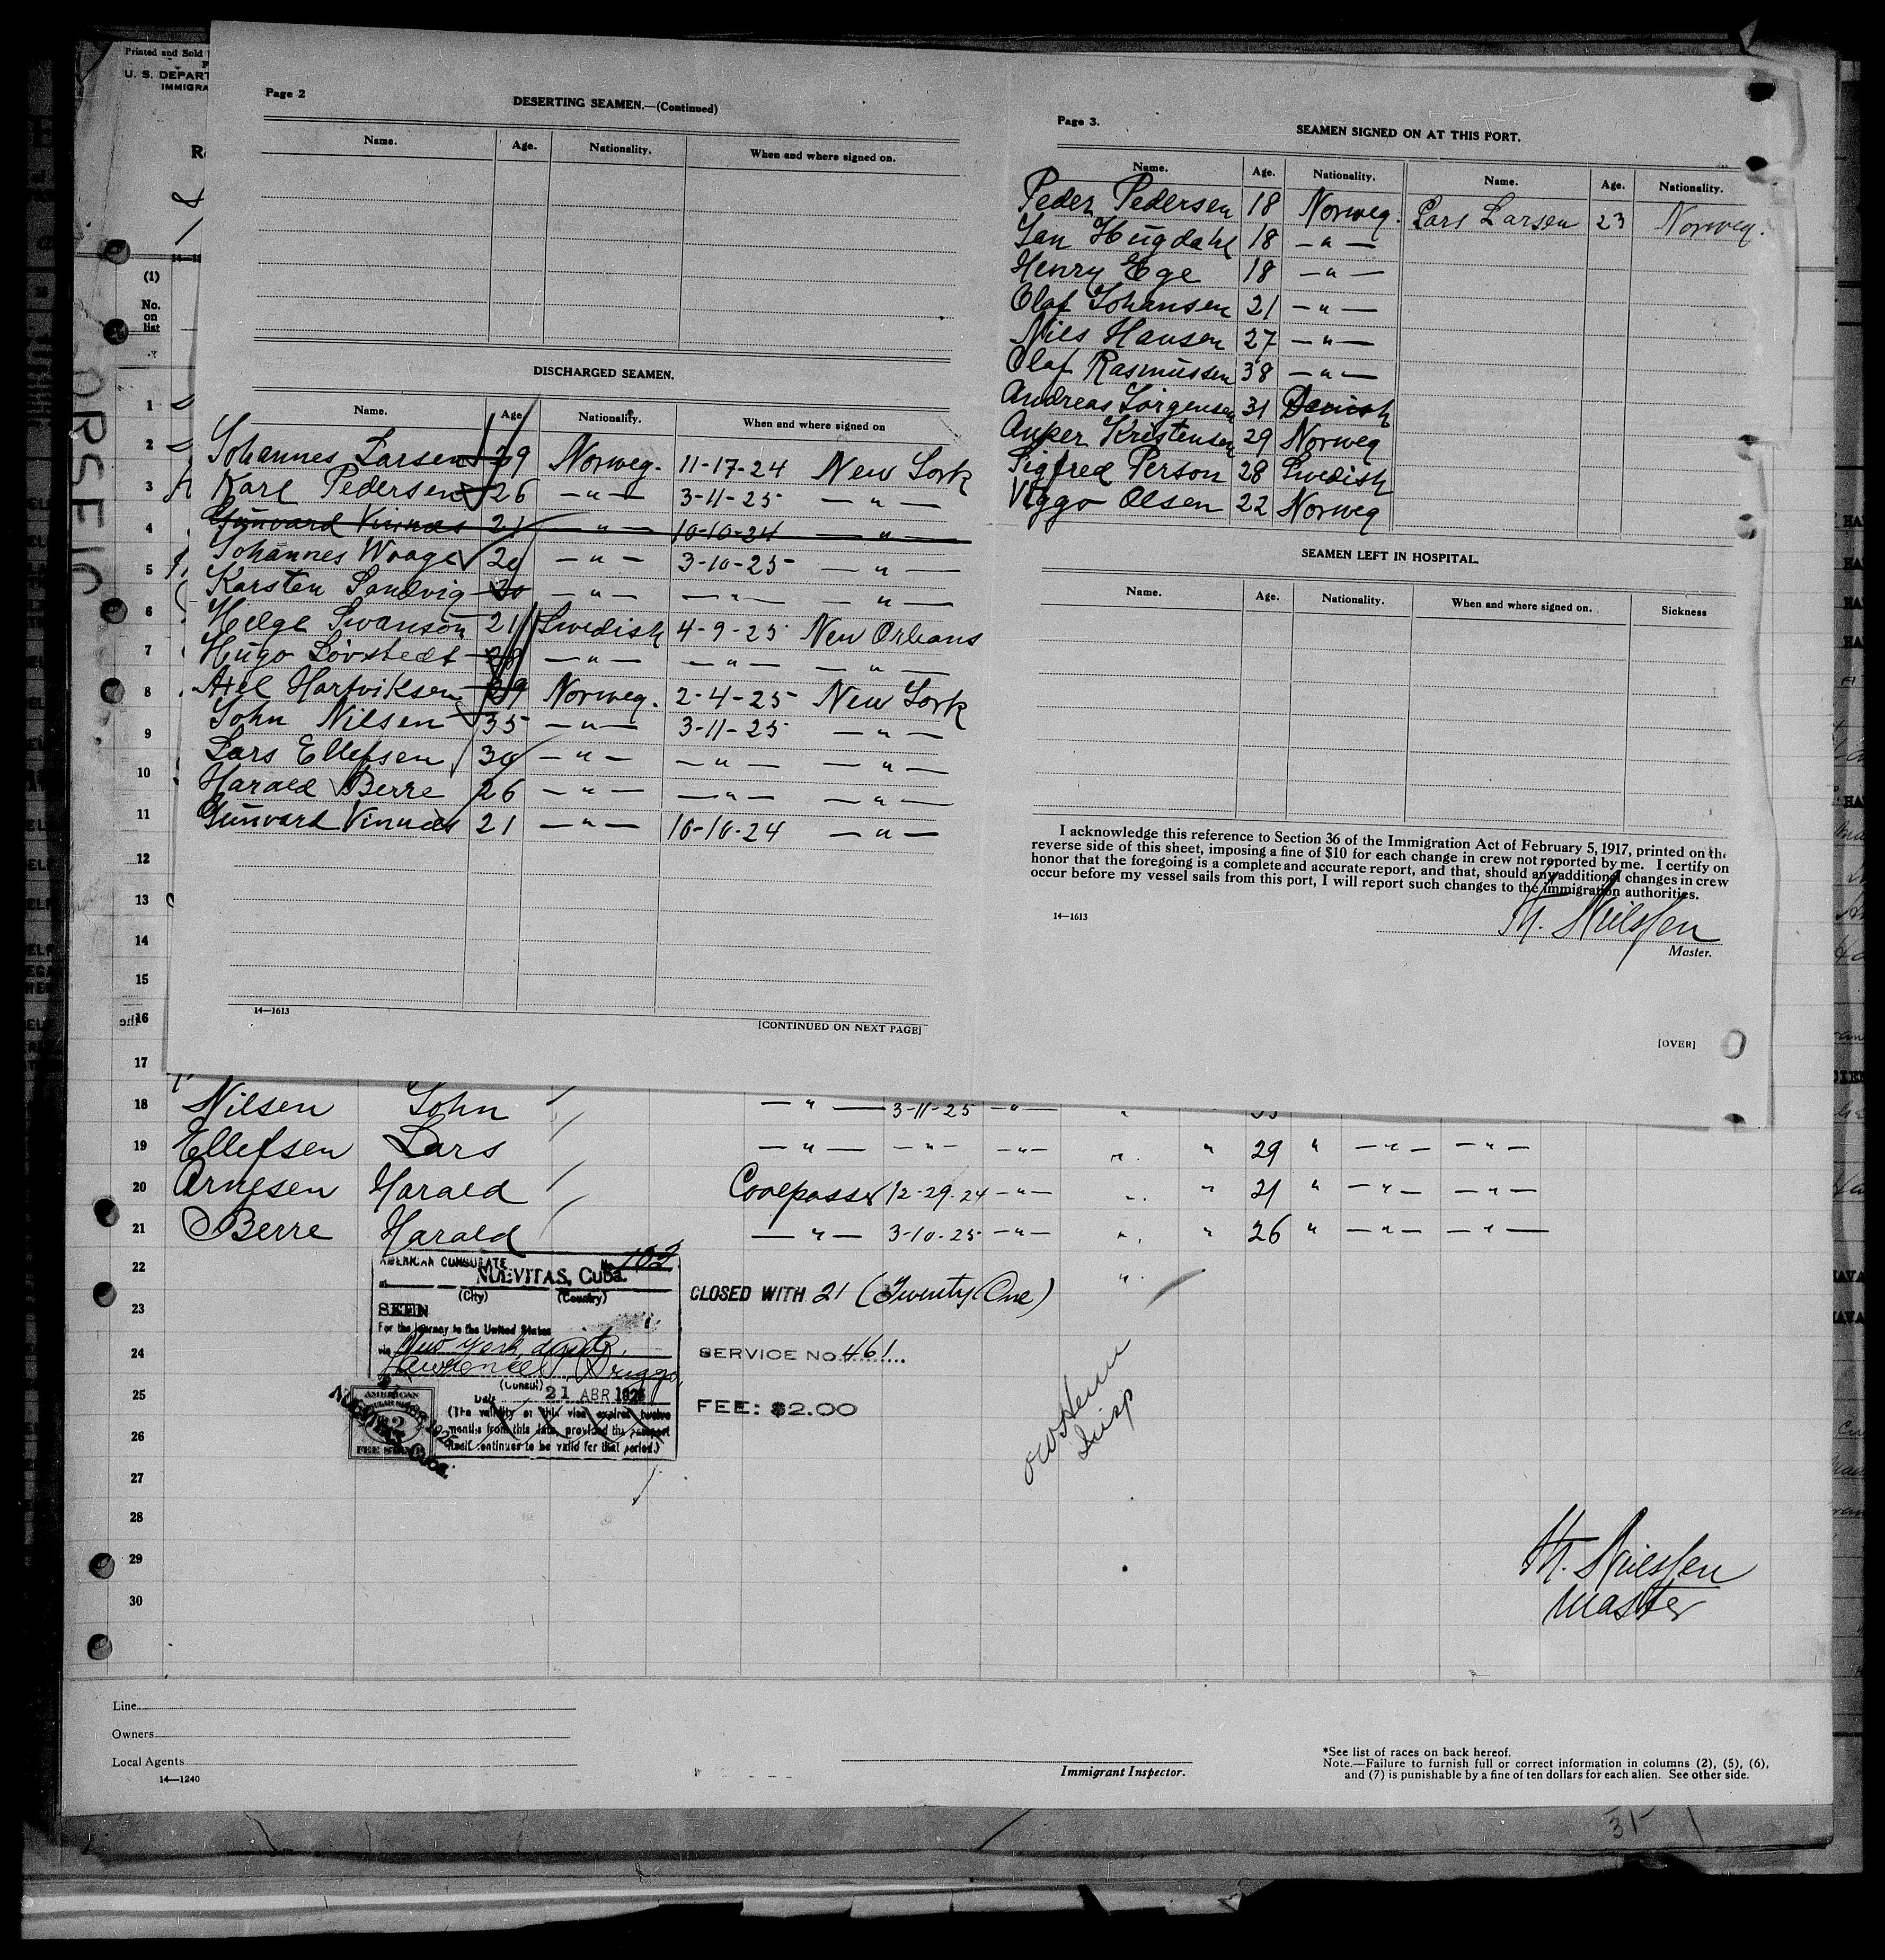 Printed and Sold
U. S. DEPART
IMMIGRA
(1)
No.
on
list
Page 2
DESERTING SEAMEN.—(Continued)
Name. Age. Nationality. When and where signed on.
DISCHARGED SEAMEN.
Name. Age Nationality. When and where signed on
Johannes Larsen 29 Norweg. 11-17-24 New York
Karl Pedersen 26 — " — 3-11-25 — " —
Gunvard Vinnæs 21 — " — 10-10-24 — " —
Johannes Waage 20 — " — 3-10-25 — " —
Karsten Sandvig 30 — " — — " — — " —
Helge Swanson 21 Swedish 4-9-25 New Orleans
Hugo Lövstedt 28 — " — — " — — " —
Axel Hartviksen 29 Norweg. 2-4-25 New York
John Nilsen 35 — " — 3-11-25 — " —
Lars Ellefsen 30 — " — — " — — " —
Harald Berre 26 — " — — " — — " —
Gunvard Vinnæs 21 — " — 10-10-24 — " —
14—1613
[CONTINUED ON NEXT PAGE]
Page 3.
SEAMEN SIGNED ON AT THIS PORT.
Name. Age. Nationality. Name. Age. Nationality.
Peder Pedersen 18 Norweg. Lars Larsen 23 Norweg.
Jan Hugdahl 18 — " —
Henry Ege 18 — " —
Olaf Johansen 21 — " —
Nils Hansen 27 — " —
Olaf Rasmussen 38 — " —
Andreas Jörgensen 31 Danish
Anker Kristensen 29 Norweg
Sigfred Person 28 Swedish
Viggo Olsen 22 Norweg
SEAMEN LEFT IN HOSPITAL.
Name. Age. Nationality. When and where signed on. Sickness
I acknowledge this reference to Section 36 of the Immigration Act of February 5, 1917, printed on the
reverse side of this sheet, imposing a fine of $10 for each change in crew not reported by me. I certify on
honor that the foregoing is a complete and accurate report, and that, should any additional changes in crew
occur before my vessel sails from this port, I will report such changes to the immigration authorities.
14—1613
M. Nielssen
Master.
[OVER]
1
2
3
4
5
6
7
8
9
10
11
12
13
14
15
16
17
18 Nilsen John — " — 3-11-25 — " —
19 Ellefsen Lars — " — — " — — " — " " 29 " — " — — " —
20 Arnesen Harald Coalpasser 12-29-24 — " — " " 21 " — " — — " —
21 Berre Harald — " — 3-10-25 — " — " " 26 " — " — — " —
22
23
24
25
26
27
28
29
30
AMERICAN CONSULATE No. 102
at NUEVITAS, Cuba.
(City) (Country)
SEEN
For the journey to the United States
via New York, direct.
Lawrence Briggs
(Consul)
Date 21 ABR 1925
(The validity of this visa expires twelve
months from this date, provided the passport
itself continues to be valid for that period.)
AMERICAN
2
FEE STAMP
NUEVITAS, Cuba.
CLOSED WITH 21 (Twenty One)
SERVICE NO. 461
FEE: $2.00
Insp
M. Nielssen
Master
Line
Owners
Local Agents
14—1240
Immigrant Inspector.
*See list of races on back hereof.
Note.—Failure to furnish full or correct information in columns (2), (5), (6),
and (7) is punishable by a fine of ten dollars for each alien. See other side.
31